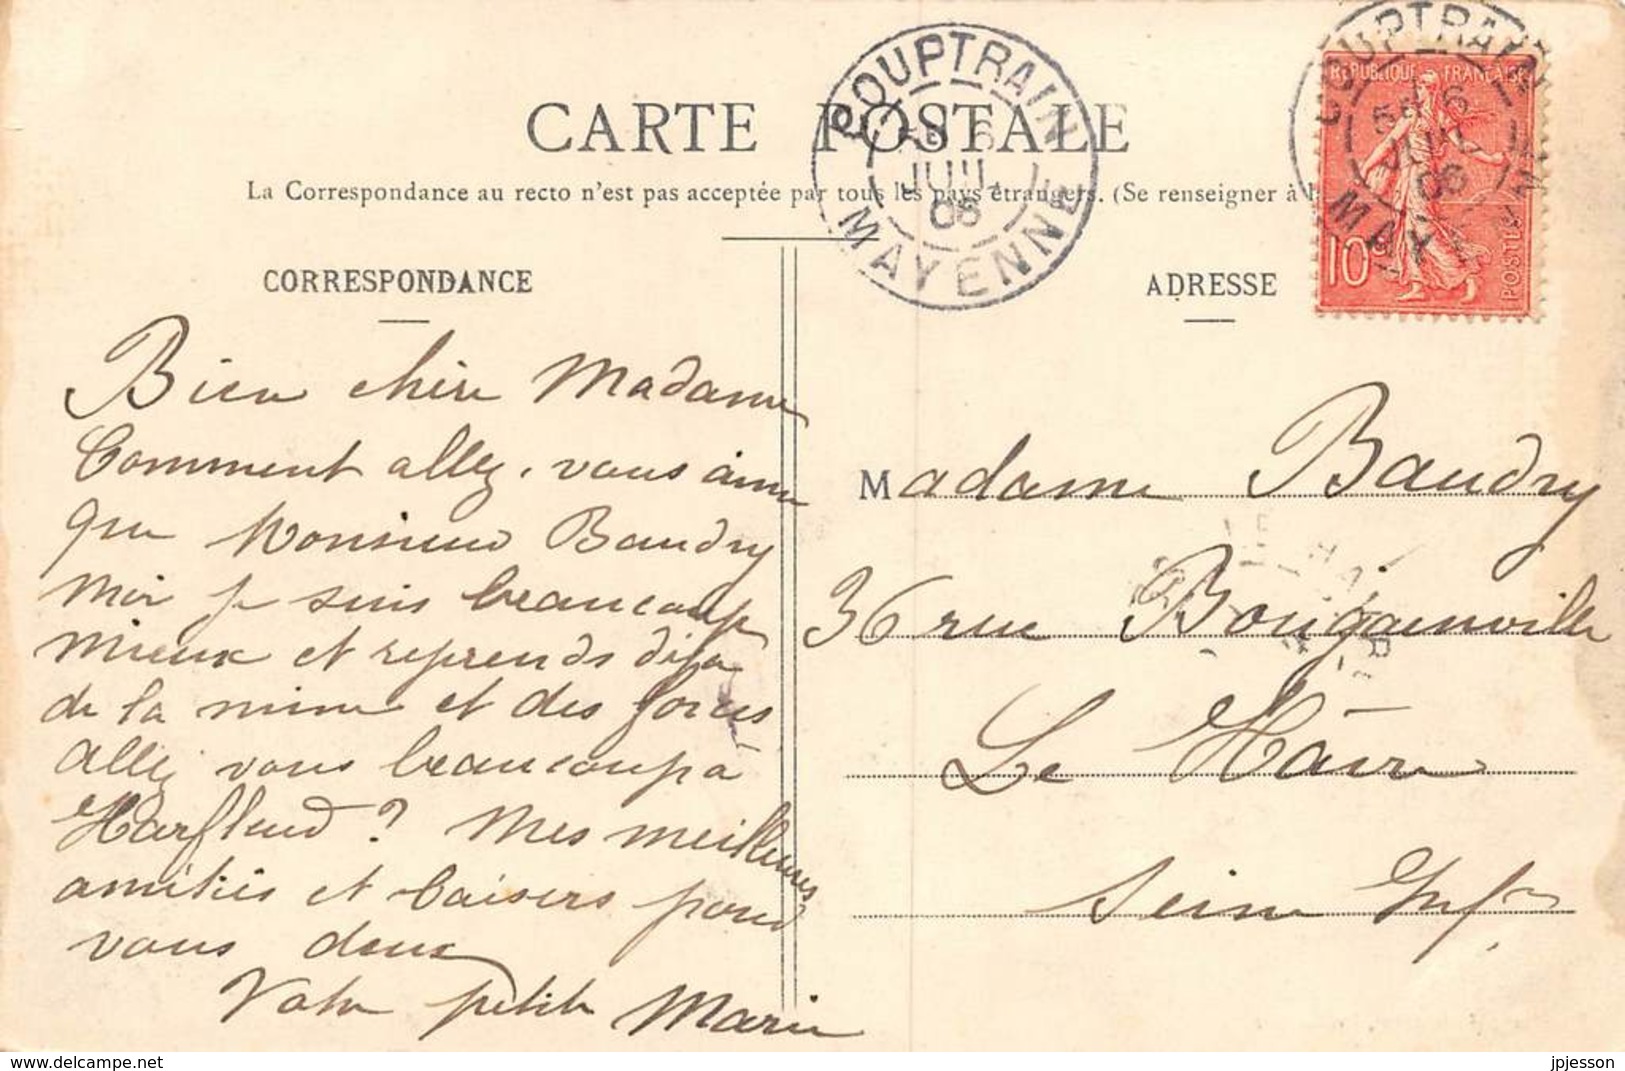 CARTE POSTALE
La Correspondance au recto n'est pas acceptée par tous les pays étrangers. (Se renseigner à l
CORRESPONDANCE
Bien chère Madame
Comment allez-vous ainsi
que Monsieur Baudry
Moi je suis beaucoup
mieux et reprends déja
de la mine et des forces
allez vous beaucoup à
Harfleur? Mes meilleures
amitiés et baisers pour
vous deux
Votre petite Marie
COUPTRAIN
6
JUIL
06
MAYENNE
ADRESSE
REPUBLIQUE FRANÇAISE
10c
POSTES
COUPTRAIN
6
JUIL
06
MAY
Madame Baudry
36 rue Bougainville
Le Hâvre
Seine Infre
https://www.delcampe.net
jpjesson